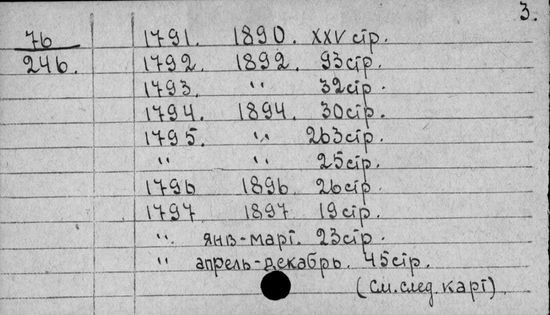 3.
76 1791. 1890. XXV стр.
246. 1792. 1892. 93 стр.
1793. " 32 стр.
1794. 1894. 30 стр.
1795. " 263 стр.
" " 25 стр.
1796 1896. 26 стр.
1797 1897 19 стр.
" янв-март. 23 стр.
" апрель-декабрь. 45 стр.
(См. след. карт)